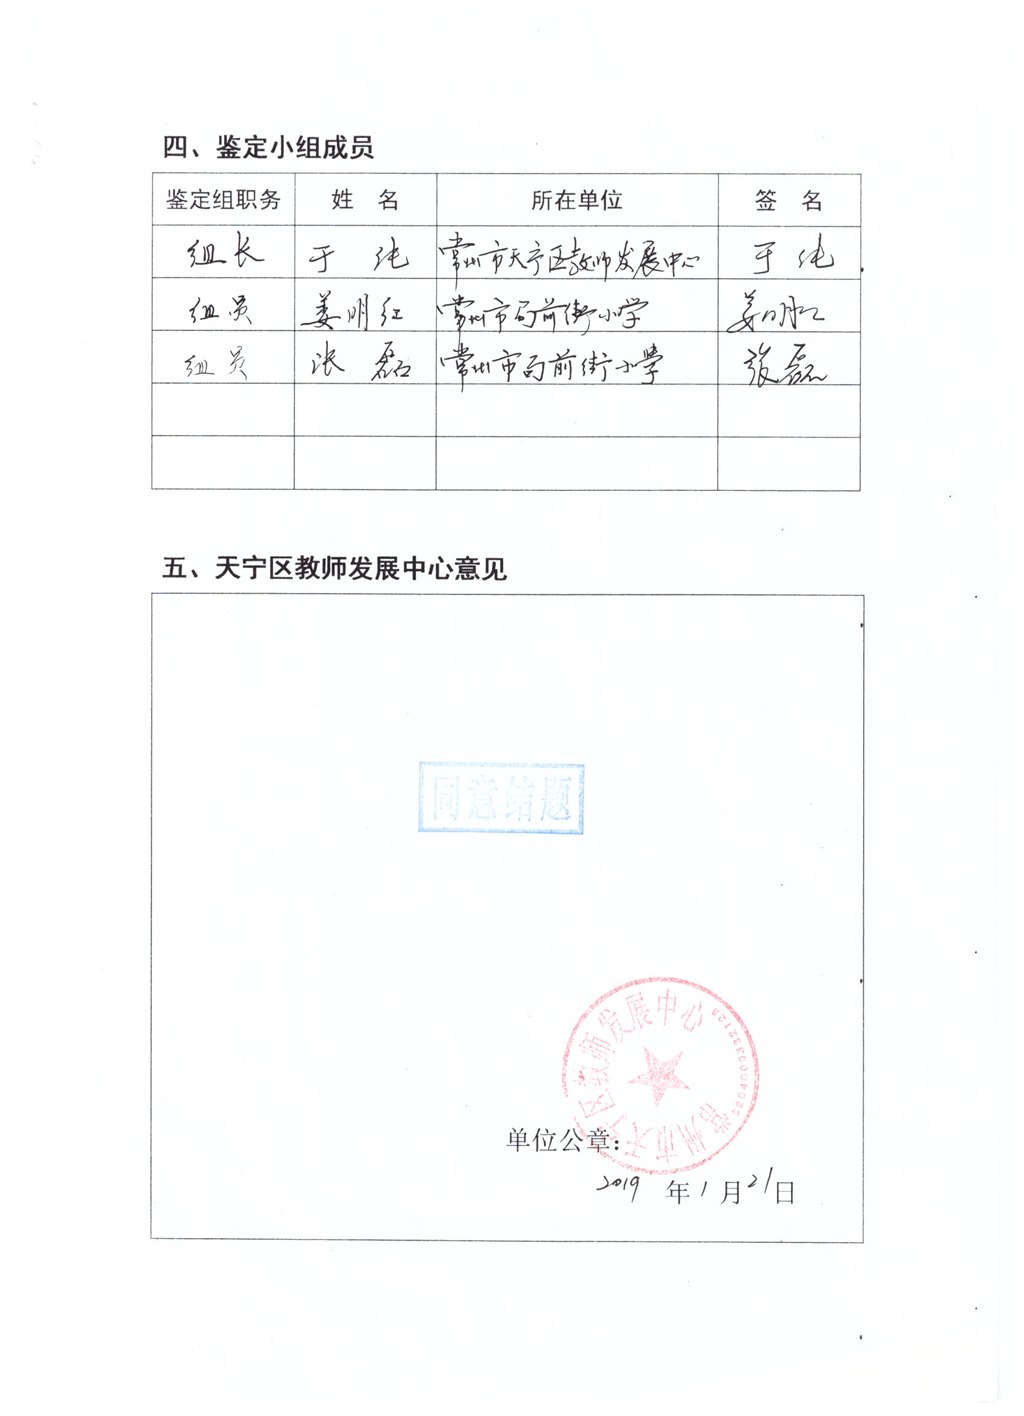 四、鉴定小组成员
鉴定组职务 姓 名 所在单位 签 名
组长 于 纯 常州市天宁区教师发展中心 于 纯
组员 姜明红 常州市局前街小学 姜明红
组员 张 磊 常州市局前街小学 张磊
五、天宁区教师发展中心意见
同意结题
常州市天宁区教师发展中心
单位公章：
2019 年 1 月 21 日